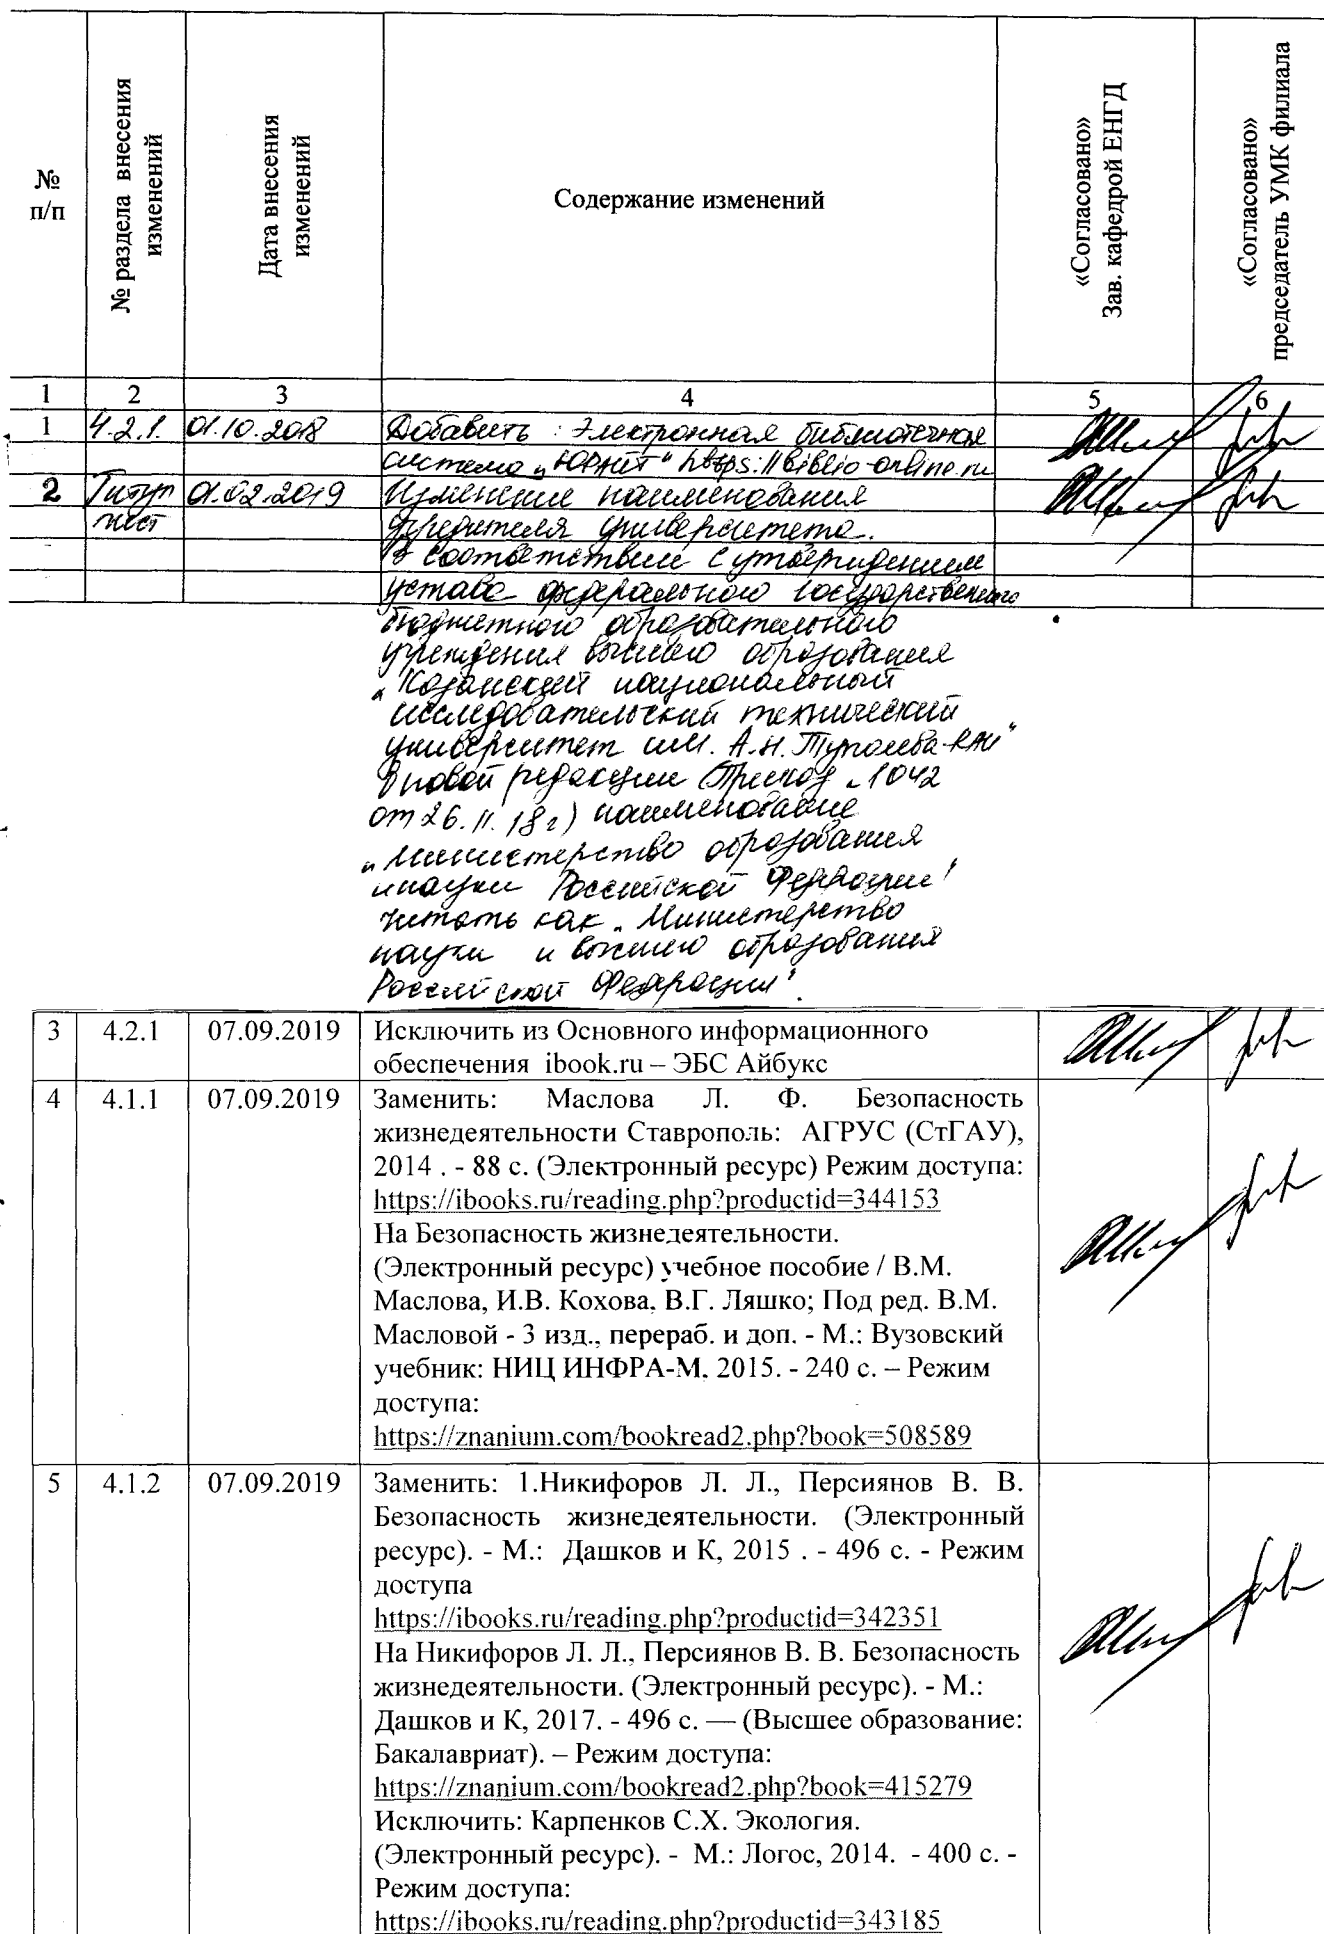 № п/п
№ раздела внесения изменений
Дата внесения изменений
Содержание изменений
«Согласовано» Зав. кафедрой ЕНГД
«Согласовано» председатель УМК филиала
1 2 3 4 5 6
1 4.2.1. 01.10.2018 Добавить: Электронная библиотечная
система „ЮРАЙТ" https://biblio-online.ru
2 Титул 01.02.2019 Изменение наименования
лист учредителя университета.
В соответствии с утверждением
устава федерального государственного
бюджетного образовательного
учреждения высшего образования
„Казанский национальный
исследовательский технический
университет им. А.Н. Туполева-КАИ"
в новой редакции (Приказ №1042
от 26.11.18г) наименование
„Министерство образования
и науки Российской Федерации"
читать как „Министерство
науки и высшего образования
Российской Федерации".
3 4.2.1 07.09.2019 Исключить из Основного информационного
обеспечения ibook.ru – ЭБС Айбукс
4 4.1.1 07.09.2019 Заменить: Маслова Л. Ф. Безопасность
жизнедеятельности Ставрополь: АГРУС (СтГАУ),
2014 . - 88 с. (Электронный ресурс) Режим доступа:
https://ibooks.ru/reading.php?productid=344153
На Безопасность жизнедеятельности.
(Электронный ресурс) учебное пособие / В.М.
Маслова, И.В. Кохова, В.Г. Ляшко; Под ред. В.М.
Масловой - 3 изд., перераб. и доп. - М.: Вузовский
учебник: НИЦ ИНФРА-М, 2015. - 240 с. – Режим
доступа:
https://znanium.com/bookread2.php?book=508589
5 4.1.2 07.09.2019 Заменить: 1.Никифоров Л. Л., Персиянов В. В.
Безопасность жизнедеятельности. (Электронный
ресурс). - М.: Дашков и К, 2015 . - 496 с. - Режим
доступа
https://ibooks.ru/reading.php?productid=342351
На Никифоров Л. Л., Персиянов В. В. Безопасность
жизнедеятельности. (Электронный ресурс). - М.:
Дашков и К, 2017. - 496 с. — (Высшее образование:
Бакалавриат). – Режим доступа:
https://znanium.com/bookread2.php?book=415279
Исключить: Карпенков С.Х. Экология.
(Электронный ресурс). - М.: Логос, 2014. - 400 с. -
Режим доступа:
https://ibooks.ru/reading.php?productid=343185